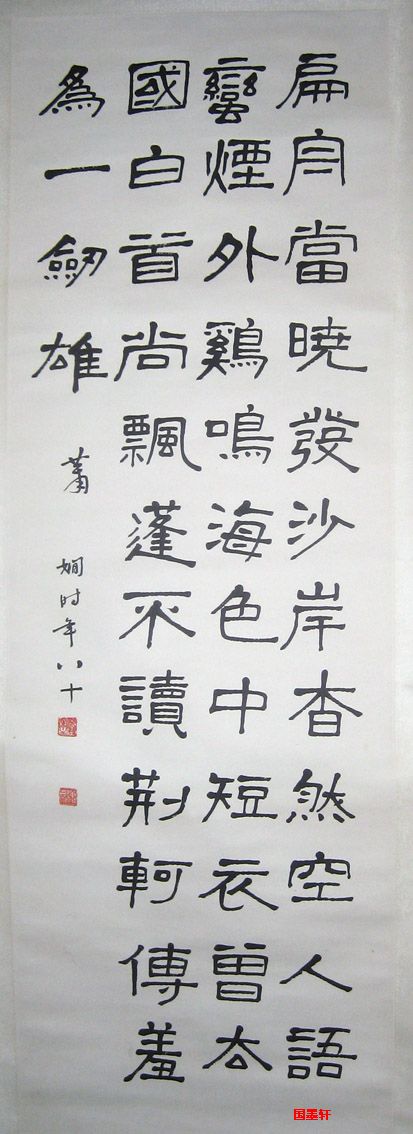 扁舟當曉發沙岸杳然空人語
蠻煙外鷄鳴海色中短衣曾去
國白首尚飄蓬不讀荊軻傳羞
為一劒雄
蕭嫻时年八十
国墨轩